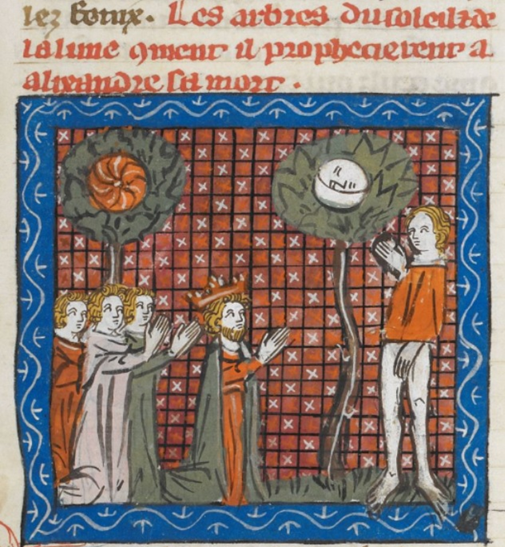 lez touz. Les arbres du soleil ⁊ de
la lune ꝯment il prophecierent a
alixandre sa mort.